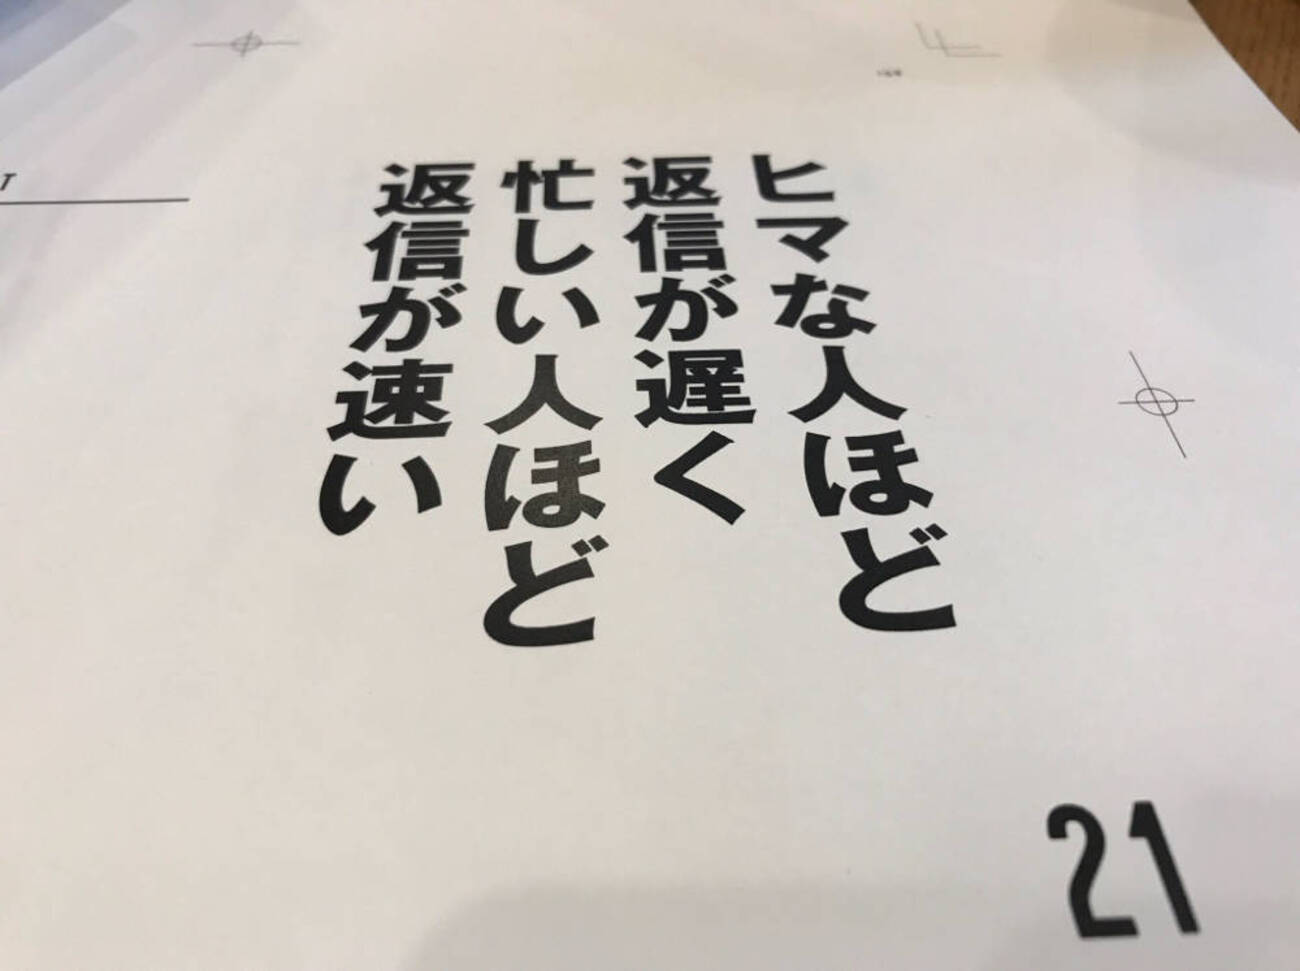 ヒマな人ほど
返信が遅く
忙しい人ほど
返信が速い
21